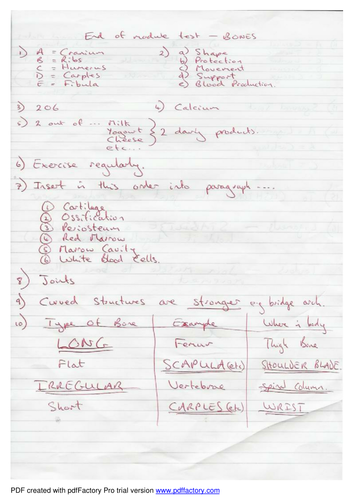 End of module test – BONES
1) A = Cranium
B = Ribs
C = Humerus
D = Carples
E = Fibula
2) a) Shape
b) Protection
c) Movement
d) Support
e) Blood Production.
3) 206
4) Calcium
5) 2 out of ... Milk
Yogurt
Cheese
etc...
2 dairy products.
6) Exercise regularly.
7) Insert in this order into paragraph ....
1 Cartilage
2 Ossification
3 Periosteum
4 Red Marrow
5 Marrow Cavity
6 White Blood Cells.
8) Joints
9) Curved structures are stronger eg bridge arch.
10) Type Of Bone Example Where in body
LONG Femur Thigh Bone
Flat SCAPULA (etc) SHOULDER BLADE
IRREGULAR Vertebrae spinal column
Short CARPLES (etc) WRIST
PDF created with pdfFactory Pro trial version www.pdffactory.com